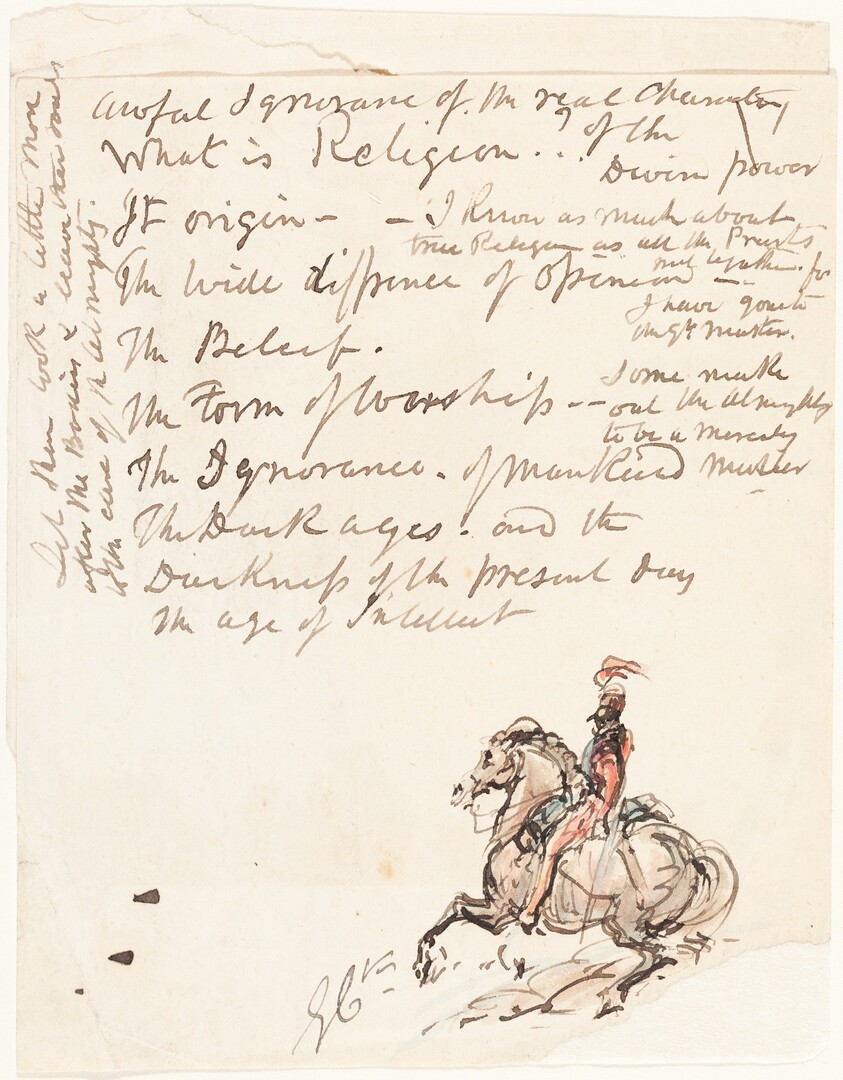 awful Ignorance of the real Character,
of the
Divine power
What is Religion..?
It origin –
– I know as much about
true Religion as all the Priests
put together – for
I have gone to
the Master.
The wide diffrence of Opinion –
The Beleif.
The Form of Worship --
Some make
out the Almighty
to be a
Master
The Ignorance. of Mankind
The Dark ages. and the
Darkness of the present day
The age of Intellect
Let them look a little more
after the Bodies & leave the souls
to the care of the Almighty.